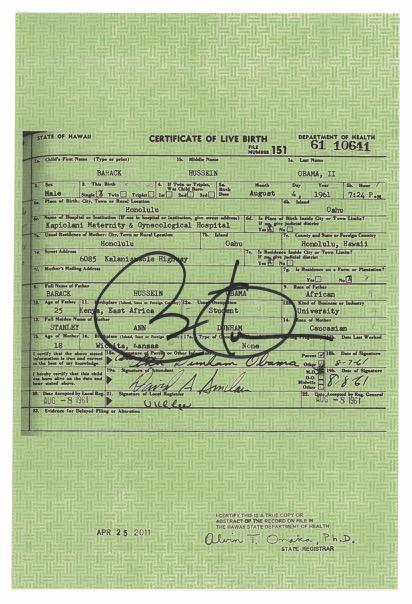 STATE OF HAWAII CERTIFICATE OF LIVE BIRTH DEPARTMENT OF HEALTH
FILE NUMBER 151 61 10641
1a. Child's First Name (Type or print) 1b. Middle Name 1c. Last Name
BARACK HUSSEIN OBAMA, II
2. Sex 3. This Birth 4. If Twin or Triplet, Was Child Born 5a. Birth Date Month Day Year 5b. Hour
Male Single Twin Triplet 1st 2nd 3rd August 4, 1961 7:24 P.M.
6a. Place of Birth: City, Town or Rural Location 6b. Island
Honolulu Oahu
6c. Name of Hospital or Institution (If not in hospital or institution, give street address) 6d. Is Place of Birth Inside City or Town Limits?
If no, give judicial district
Kapiolani Maternity & Gynecological Hospital Yes No
7a. Usual Residence of Mother: City, Town or Rural Location 7b. Island 7c. County and State or Foreign Country
Honolulu Oahu Honolulu, Hawaii
7d. Street Address 7e. Is Residence Inside City or Town Limits?
If no, give judicial district
6085 Kalanianaole Highway Yes No
7f. Mother's Mailing Address 7g. Is Residence on a Farm or Plantation?
Yes No
8. Full Name of Father 9. Race of Father
BARACK HUSSEIN OBAMA African
10. Age of Father 11. Birthplace 12a. Usual Occupation 12b. Kind of Business or Industry
25 Kenya, East Africa Student University
13. Full Maiden Name of Mother 14. Race of Mother
STANLEY ANN DUNHAM Caucasian
15. Age of Mother 16. Birthplace 17a. Type of 17b. Date Last Worked
18 Wichita, Kansas None
I certify that the above stated information is true and correct to the best of my knowledge. 18a. Signature of Parent or Other Informant Parent Other 18b. Date of Signature
Dunham Obama 8-7-61
I hereby certify that this child was born alive on the date and hour stated above. 19a. Signature of Attendant M.D. D.O. Midwife Other 19b. Date of Signature
David A Sinclair 8-8-61
20. Date Accepted by Local Reg. 21. 22. Date Accepted by Reg. General
AUG -8 1961 AUG -8 1961
23. Evidence for Delayed Filing or Alteration
APR 25 2011
I CERTIFY THIS IS A TRUE COPY OR
ABSTRACT OF THE RECORD ON FILE IN
THE HAWAII STATE DEPARTMENT OF HEALTH
Alvin T. Onaka, Ph.D.
STATE REGISTRAR